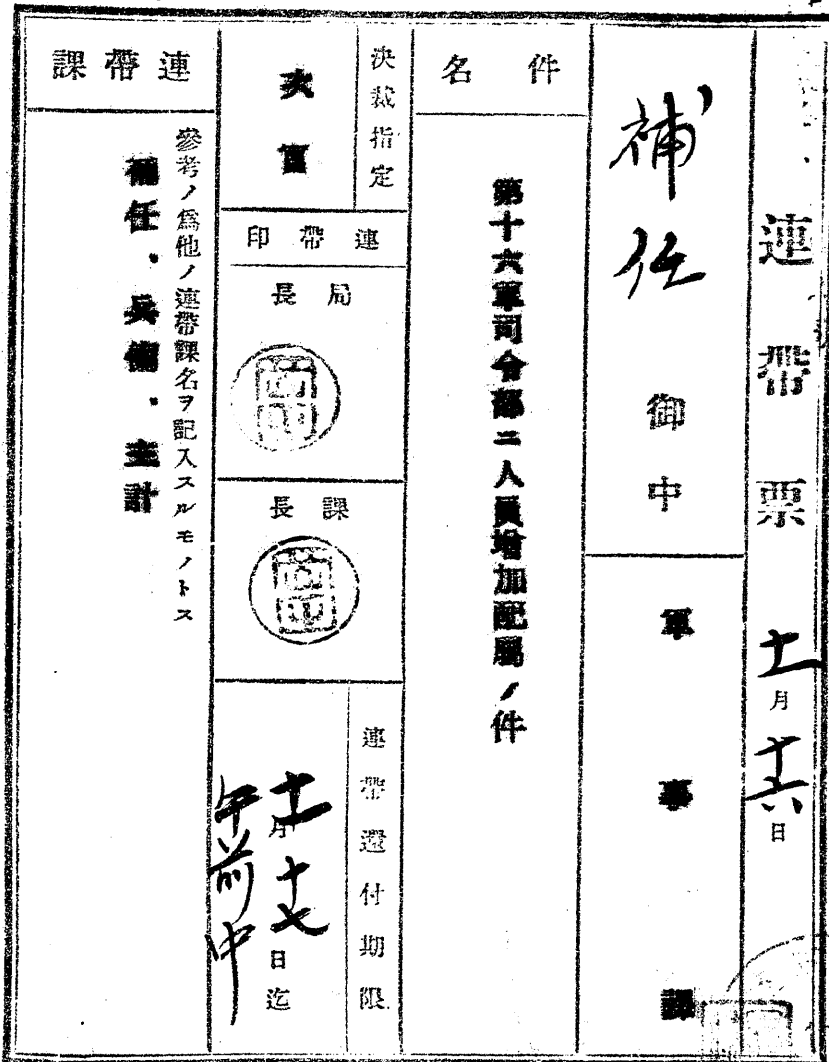 連帶票 十一月十六日
補任 御中
軍事課
件名
第十六軍司令部ニ人員增加配屬ノ件
決裁指定
次官
連帶印
局長
課長
連帶還付期限
十一月十七日迄
午前中
連帶課
參考ノ爲他ノ連帶課名ヲ記入スルモノトス
補任、兵備、主計